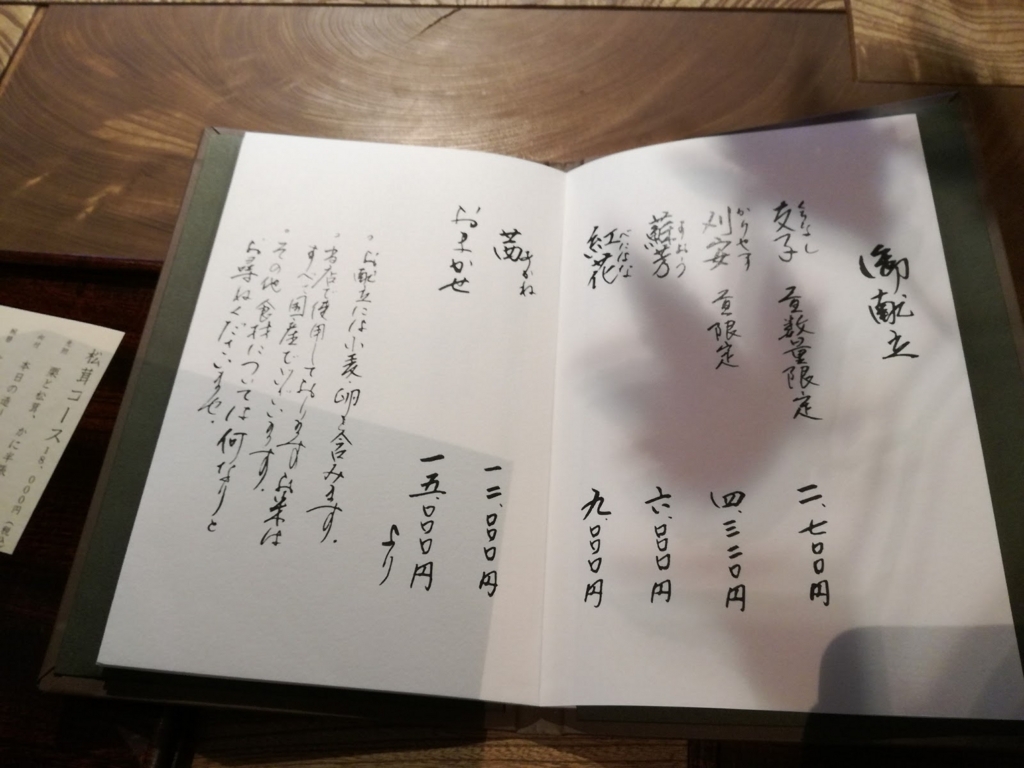 御献立
くちなし
支子 昼数量限定 二、七〇〇円
かりやす
刈安 昼限定 四、三二〇円
すおう
蘇芳 六、〇〇〇円
べにばな
紅花 九、〇〇〇円
あかね
茜 一二、〇〇〇円
おまかせ 一五、〇〇〇円より
。お献立には小麦、卵を含みます。
。当店で使用しておりますお米は
すべて国産でございます。
。その他食材については何なりと
お尋ねくださいませ。
松茸コース 18,000円(税込
栗と松茸、かに羊羹
本日の造り